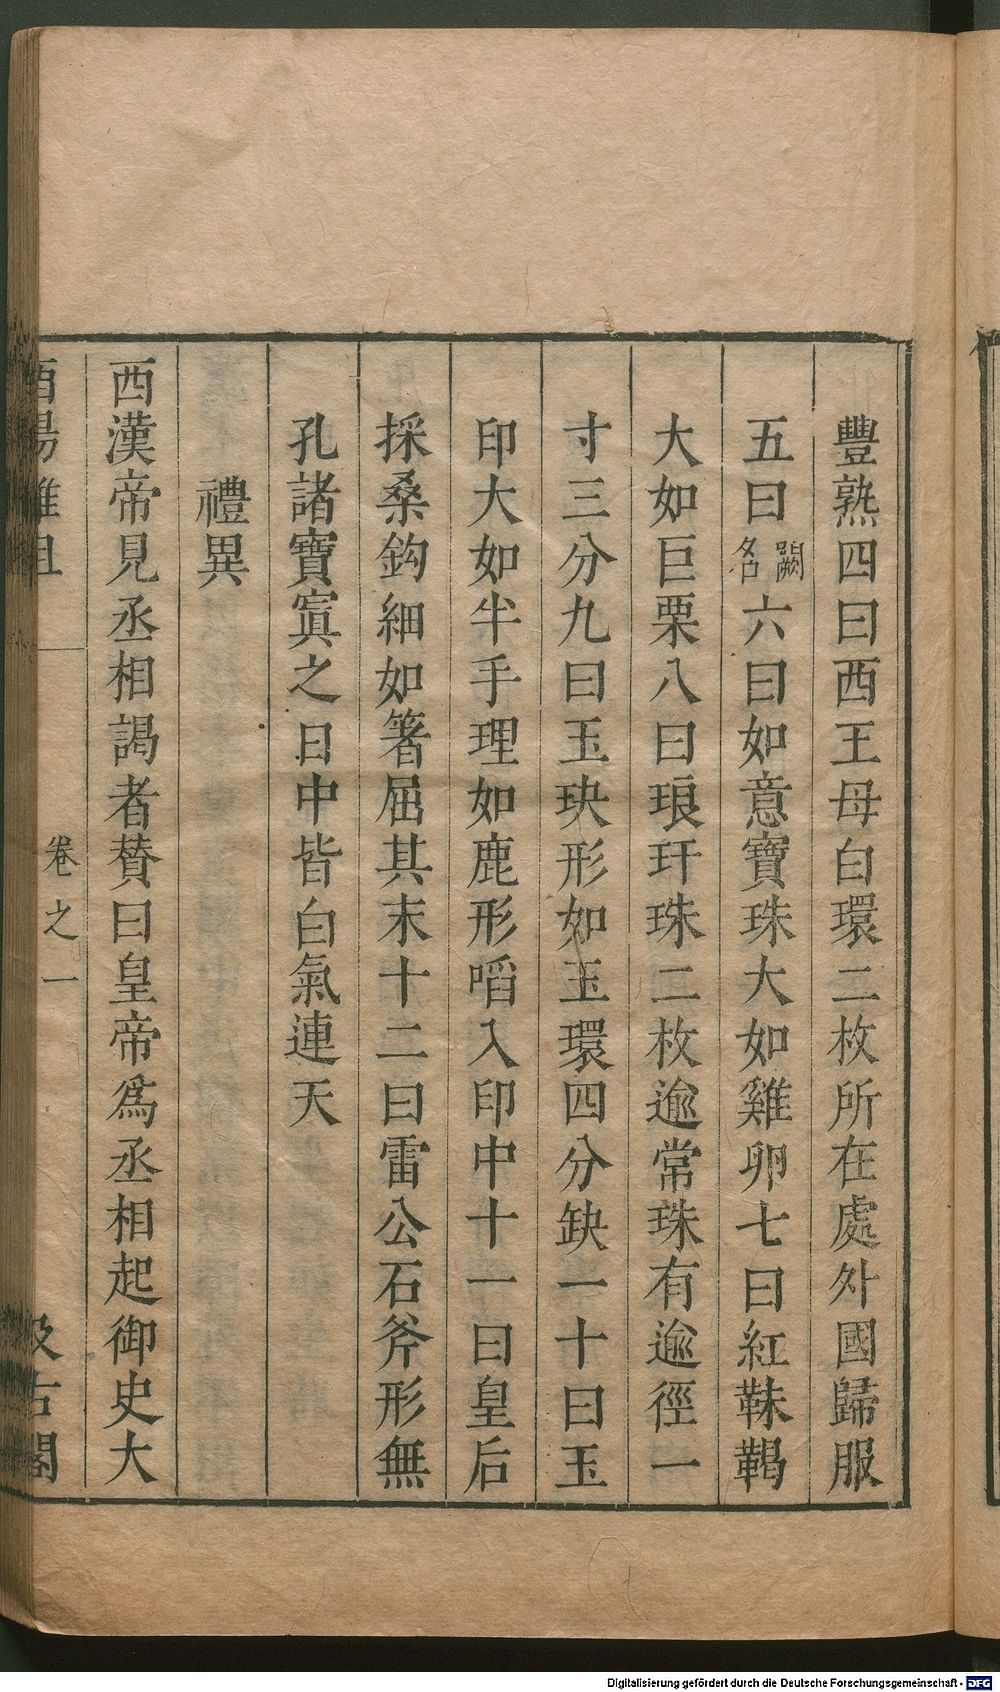 豐熟四曰西王母白環二枚所在處外國歸服
五曰闕名六曰如意寶珠大如雞卵七曰紅靺鞨
大如巨栗八曰琅玕珠二枚逾常珠有逾徑一
寸三分九曰玉玦形如玉環四分缺一十曰玉
印大如半手理如鹿形㗖入印中十一曰皇后
採桑鈎細如箸屈其末十二曰雷公石斧形無
孔諸寶寘之日中皆白氣連天
禮異
西漢帝見丞相謁者賛曰皇帝爲丞相起御史大
酉陽雜俎
卷之一
汲古閣
Digitalisierung gefördert durch die Deutsche Forschungsgemeinschaft - DFG